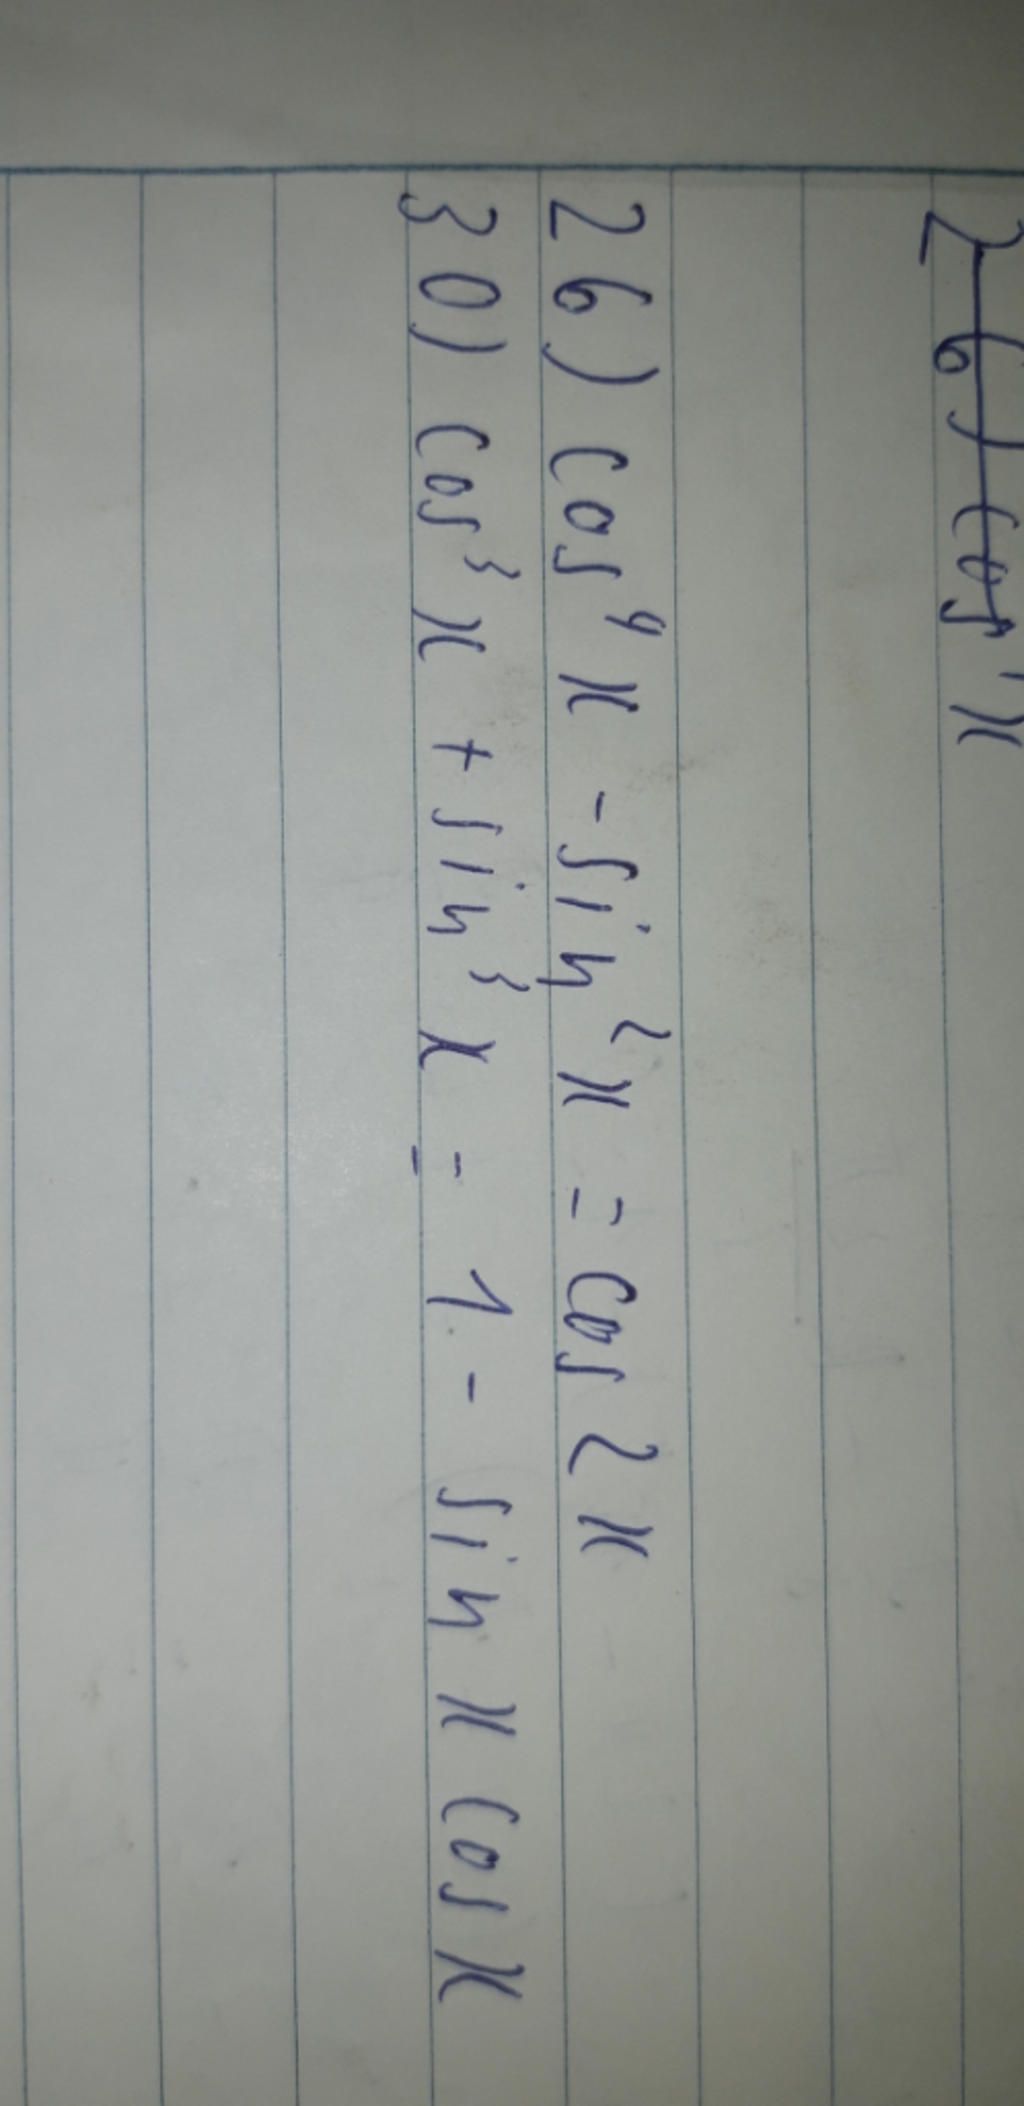 26) cos⁴ x
26) cos⁴ x - sin² x = cos 2x
30) cos³ x + sin³ x = 1 - sin x cos x